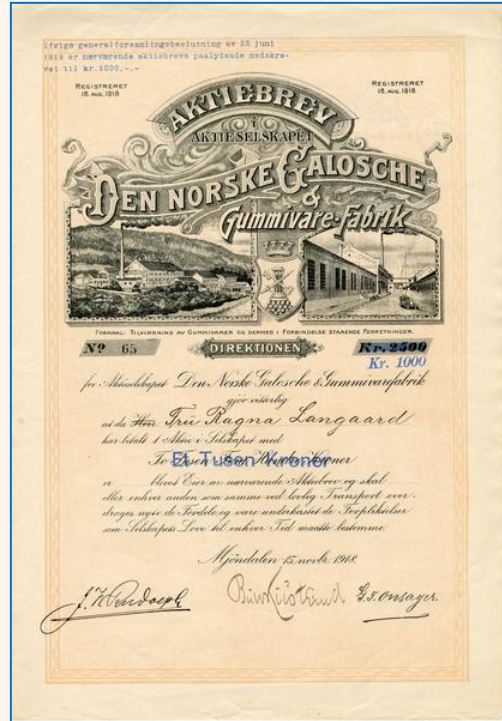 Ifølge generalforsamlingsbeslutning av 25 juni
1919 er nærværende aktiebrevs paalydende nedskre-
vet til kr.1000,-.-
REGISTRERET
16. AUG. 1918
REGISTRERET
16. AUG. 1918
AKTIEBREV
i
AKTIESELSKAPET
DEN NORSKE GALOSCHE
&
Gummivare-Fabrik
FORMAAL: TILVIRKNING AV GUMMIVARER OG DERMED I FORBINDELSE STAAENDE FORRETNINGER.
Nº 65
DIREKTIONEN
Kr. 2500
Kr. 1000
for Aktieselskapet Den Norske Galosche & Gummivarefabrik
gjør vitterlig
at da Herr Fru Ragna Langaard
har betalt 1 Aktie i Selskapet med
To Tusen Fem Hundre Kroner
Et Tusen Kroner
er blevet Eier av nærværende Aktiebrev og skal
eller enhver anden som samme ved lovlig Transport over-
drages nyte de Fordele og være underkastet de Forpliktelser
som Selskapets Love til enhver Tid maatte bestemme.
Mjöndalen 15. novbr. 1918.
G. I. Onsager.